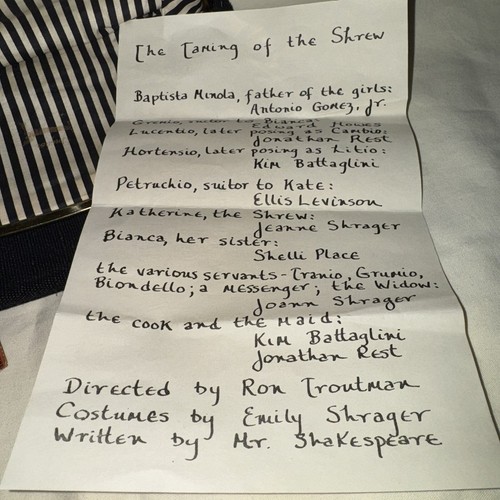 The Taming of the Shrew
Baptista Minola, father of the girls:
Antonio Gomez, Jr.
Gremio, suitor to Bianca:
Edward Howes
Lucentio, later posing as Cambio:
Jonathan Rest
Hortensio, later posing as Litio:
Kim Battaglini
Petruchio, suitor to Kate:
Ellis Levinson
Katherine, the Shrew:
Jeanne Shrager
Bianca, her sister:
Shelli Place
the various servants-Tranio, Grumio,
Biondello; a messenger; the Widow:
Joann Shrager
the cook and the Maid:
Kim Battaglini
Jonathan Rest
Directed by Ron Troutman
Costumes by Emily Shrager
Written by Mr. Shakespeare